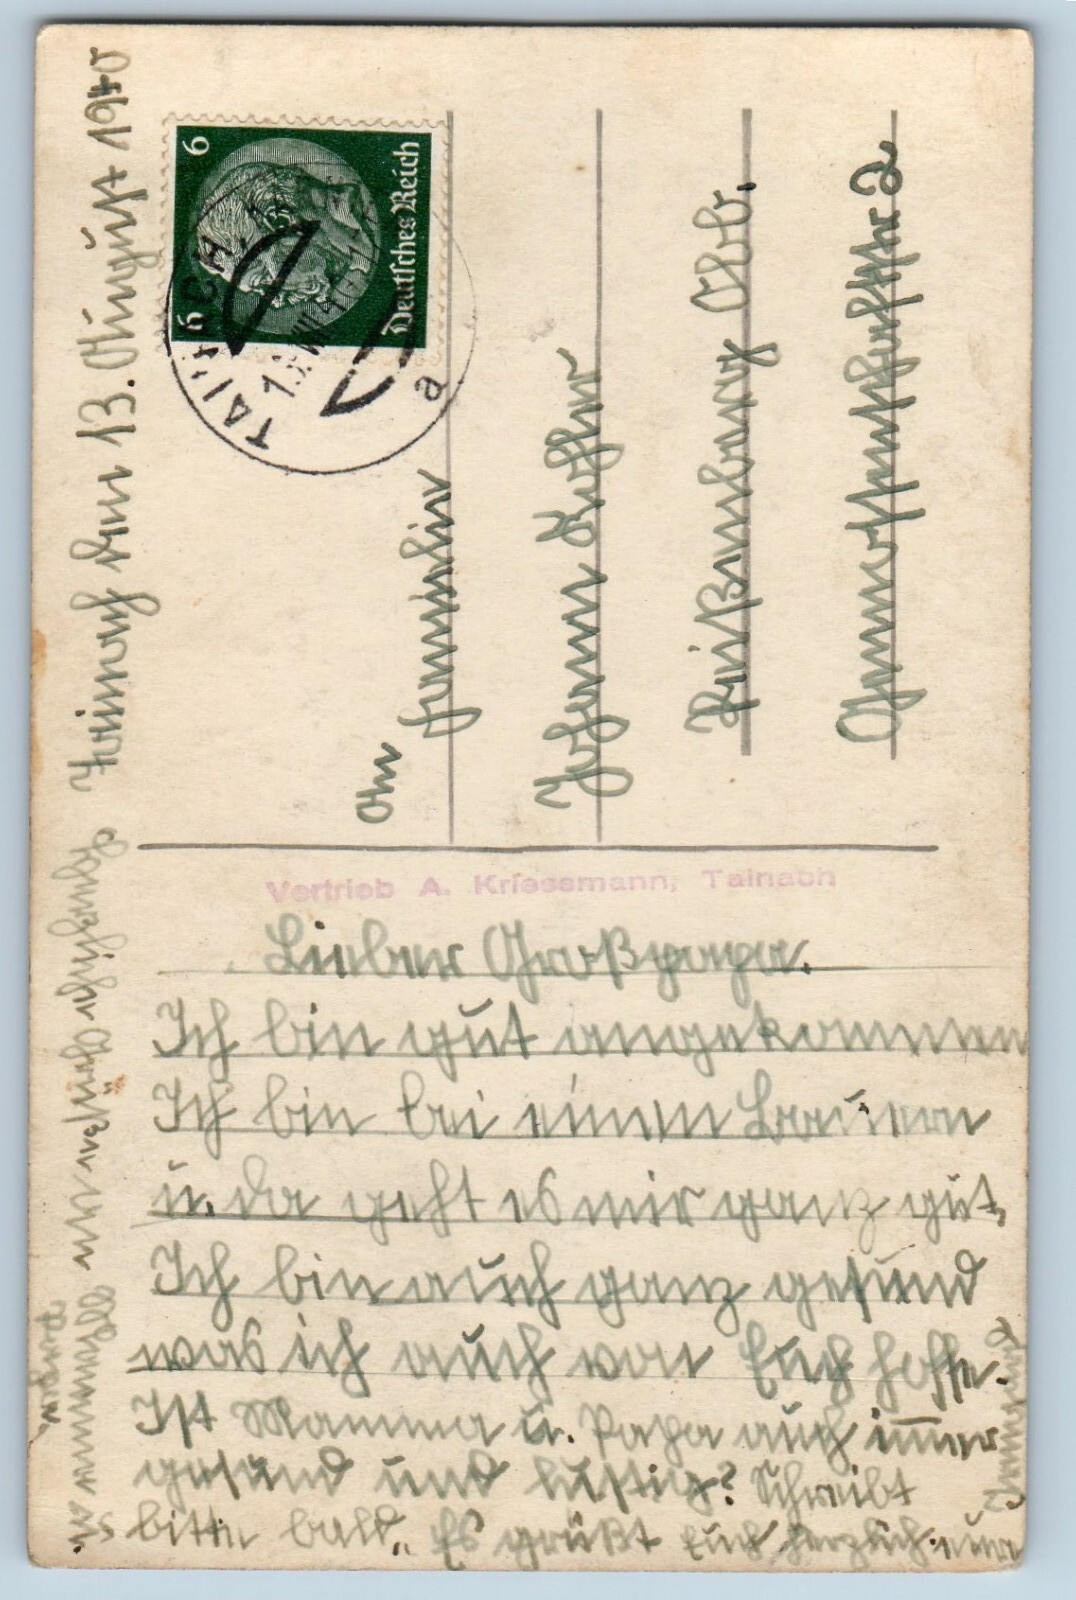 Tainach den 13. August 1940
6 6
Deutsches Reich
TAINACH
a
An
Familie
Johann Kofler
Reißenberg
Genossenschaftstr 2
Vertrieb A. Kriessmann, Tainach
Lieber Großpapa.
Ich bin gut angekommen
Ich bin bei einem Bauern
u. da geht es mir ganz gut,
Ich bin auch ganz gesund
was ich auch von Euch hoffe.
Ist Mamma u. Papa auch immer
gesund und lustig? Schreibt
bitte bald. Es grüßt Euch herzlich euer